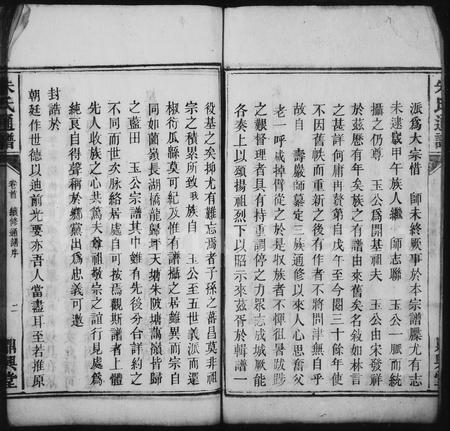 派為大宗惜 師未終厥事於本宗譜牒尤有志
未逮歲甲午族人繼 師志聯 玉公一脈而統
攝之仍尊 玉公為開基祖夫 玉公由宋發祥
於茲歷有年矣族之有譜由來舊矣名裕如林言
之甚詳何庸再贅第自戊午至今閱三十余年使
不因舊帙而重新之後有作者不將問津無自乎
故自 壽嚴師纂定三族通修以來人心思奮父
老一呼咸掉臂從之於是収族者不憚徂暑跋踄
之艱督理者具有持重調停之力眾志成城厥能
各奏上以頌揚祖烈下以昭示來茲胥於輯譜一
役基之矣抑尤有難忘焉者子孫之蕃昌莫非祖
宗之積累所致我族自 玉公分五世義派而還
椒衍瓜緜莫可紀及惟有譜攝之居雖異而宗自
同如蘭嶺長湖橋龍歸坪天塘朱陂塘萬嶺皆歸
之藍田 玉公宗譜其中雖有先後分合詳約之
不同而世次脉絡居處自可按焉觀斯譜者上體
先人收族之心共篤夫尊祖敬宗之誼行見處為
純良自得聲稱於鄉黨出為忠義可邀
封誥於
朝廷作世德以迪前光要亦吾人當盡耳至若推原
朱氏通譜
卷首 續修通譜序
二
鼎興堂